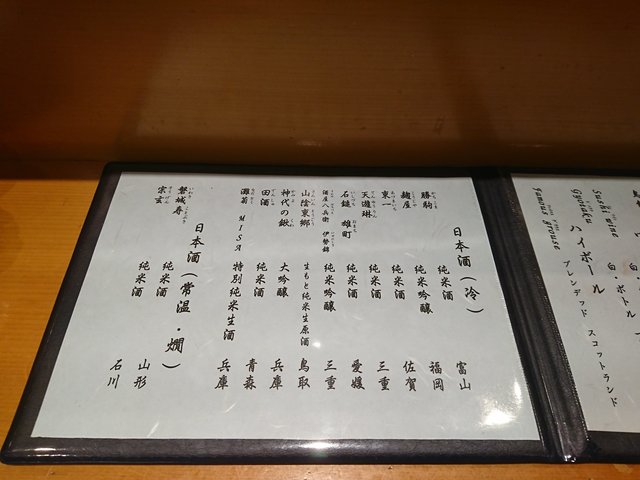 白 ボトル
ハイボール
Famous grouse ブレンデッド スコットランド
日本酒(冷)
勝駒 純米酒 富山
麹屋 純米吟醸 福岡
東一 純米酒 佐賀
天遊琳 純米酒 三重
石鎚 雄町 純米酒 愛媛
酒屋八兵衛 伊勢錦 純米吟醸 三重
山陰東郷 生もと純米生原酒 鳥取
神代の鍬 大吟醸 兵庫
田酒 純米酒 青森
灘菊 MISA 特別純米生酒 兵庫
日本酒(常温・燗)
磐城寿 純米酒 山形
宗玄 純米酒 石川